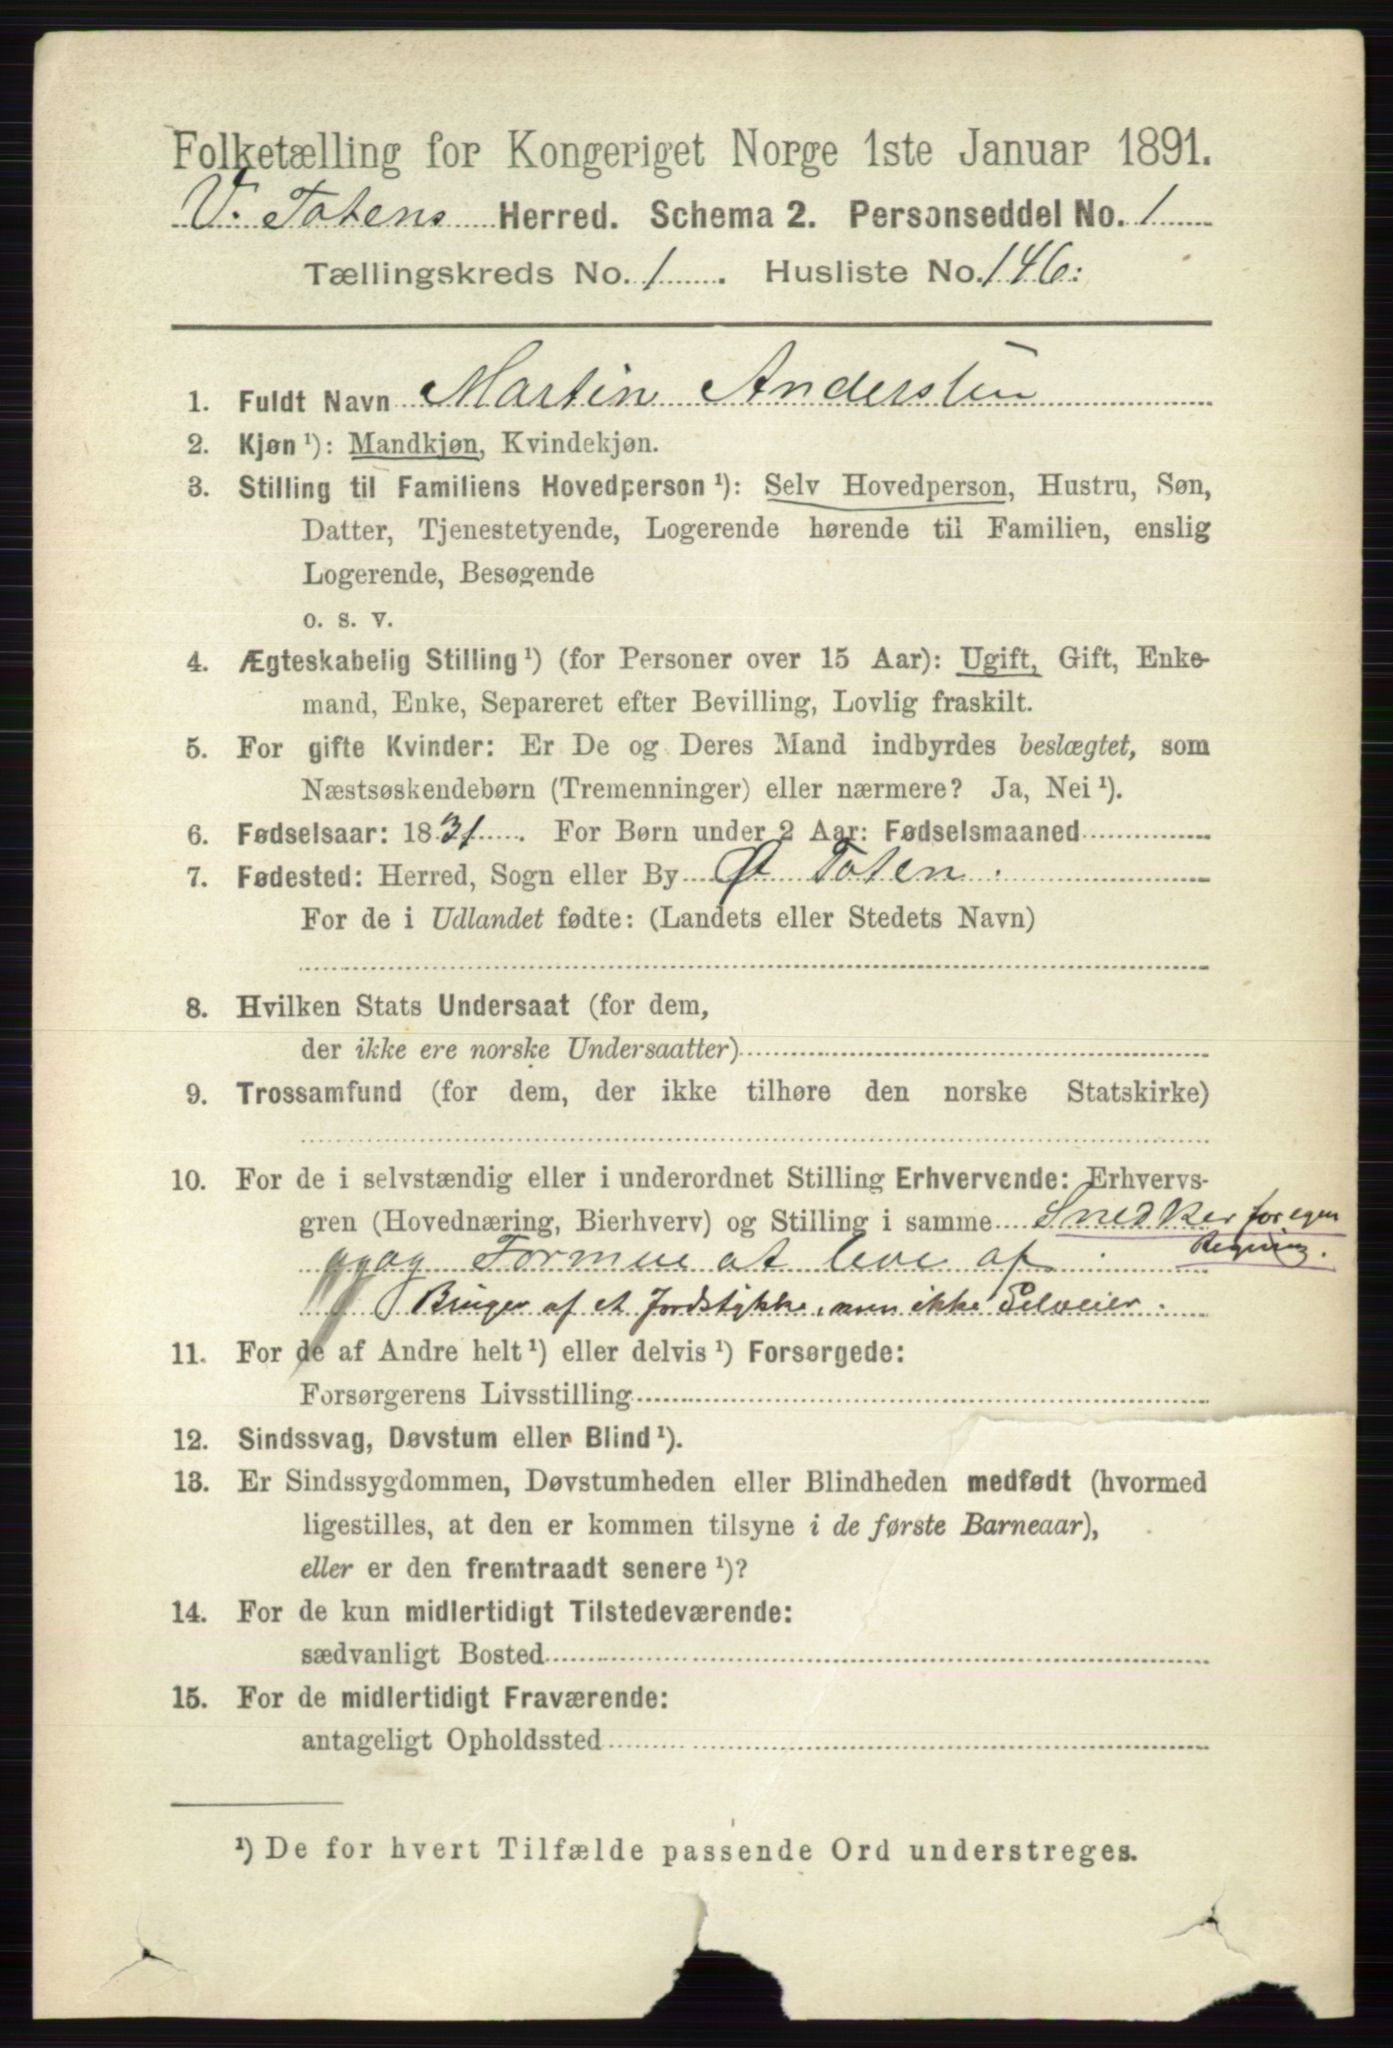 Folketælling for Kongeriget Norge 1ste Januar 1891.
V. Totens Herred. Schema 2. Personseddel No. 1
Tællingskreds No. 1. Husliste No. 146:
1. Fuldt Navn Martin Andersen
2. Kjøn ¹): Mandkjøn, Kvindekjøn.
3. Stilling til Familiens Hovedperson ¹): Selv Hovedperson, Hustru, Søn,
Datter, Tjenestetyende, Logerende hørende til Familien, enslig
Logerende, Besøgende
o. s. v.
4. Ægteskabelig Stilling ¹) (for Personer over 15 Aar): Ugift, Gift, Enke-
mand, Enke, Separeret efter Bevilling, Lovlig fraskilt.
5. For gifte Kvinder: Er De og Deres Mand indbyrdes beslægtet, som
Næstsøskendebørn (Tremenninger) eller nærmere? Ja, Nei ¹).
6. Fødselsaar: 1831. For Børn under 2 Aar: Fødselsmaaned
7. Fødested: Herred, Sogn eller By Ø Toten.
For de i Udlandet fødte: (Landets eller Stedets Navn)
8. Hvilken Stats Undersaat (for dem,
der ikke ere norske Undersaatter)
9. Trossamfund (for dem, der ikke tilhøre den norske Statskirke)
10. For de i selvstændig eller i underordnet Stilling Erhvervende: Erhvervs-
gren (Hovednæring, Bierhverv) og Stilling i samme Snedker for egen
Regning.
Formue at leve af
Bruger af et Jordstykke, men ikke Selveier.
11. For de af Andre helt ¹) eller delvis ¹) Forsørgede:
Forsørgerens Livsstilling
12. Sindssvag, Døvstum eller Blind ¹).
13. Er Sindssygdommen, Døvstumheden eller Blindheden medfødt (hvormed
ligestilles, at den er kommen tilsyne i de første Barneaar),
eller er den fremtraadt senere ¹)?
14. For de kun midlertidigt Tilstedeværende:
sædvanligt Bosted
15. For de midlertidigt Fraværende:
antageligt Opholdssted
¹) De for hvert Tilfælde passende Ord understreges.